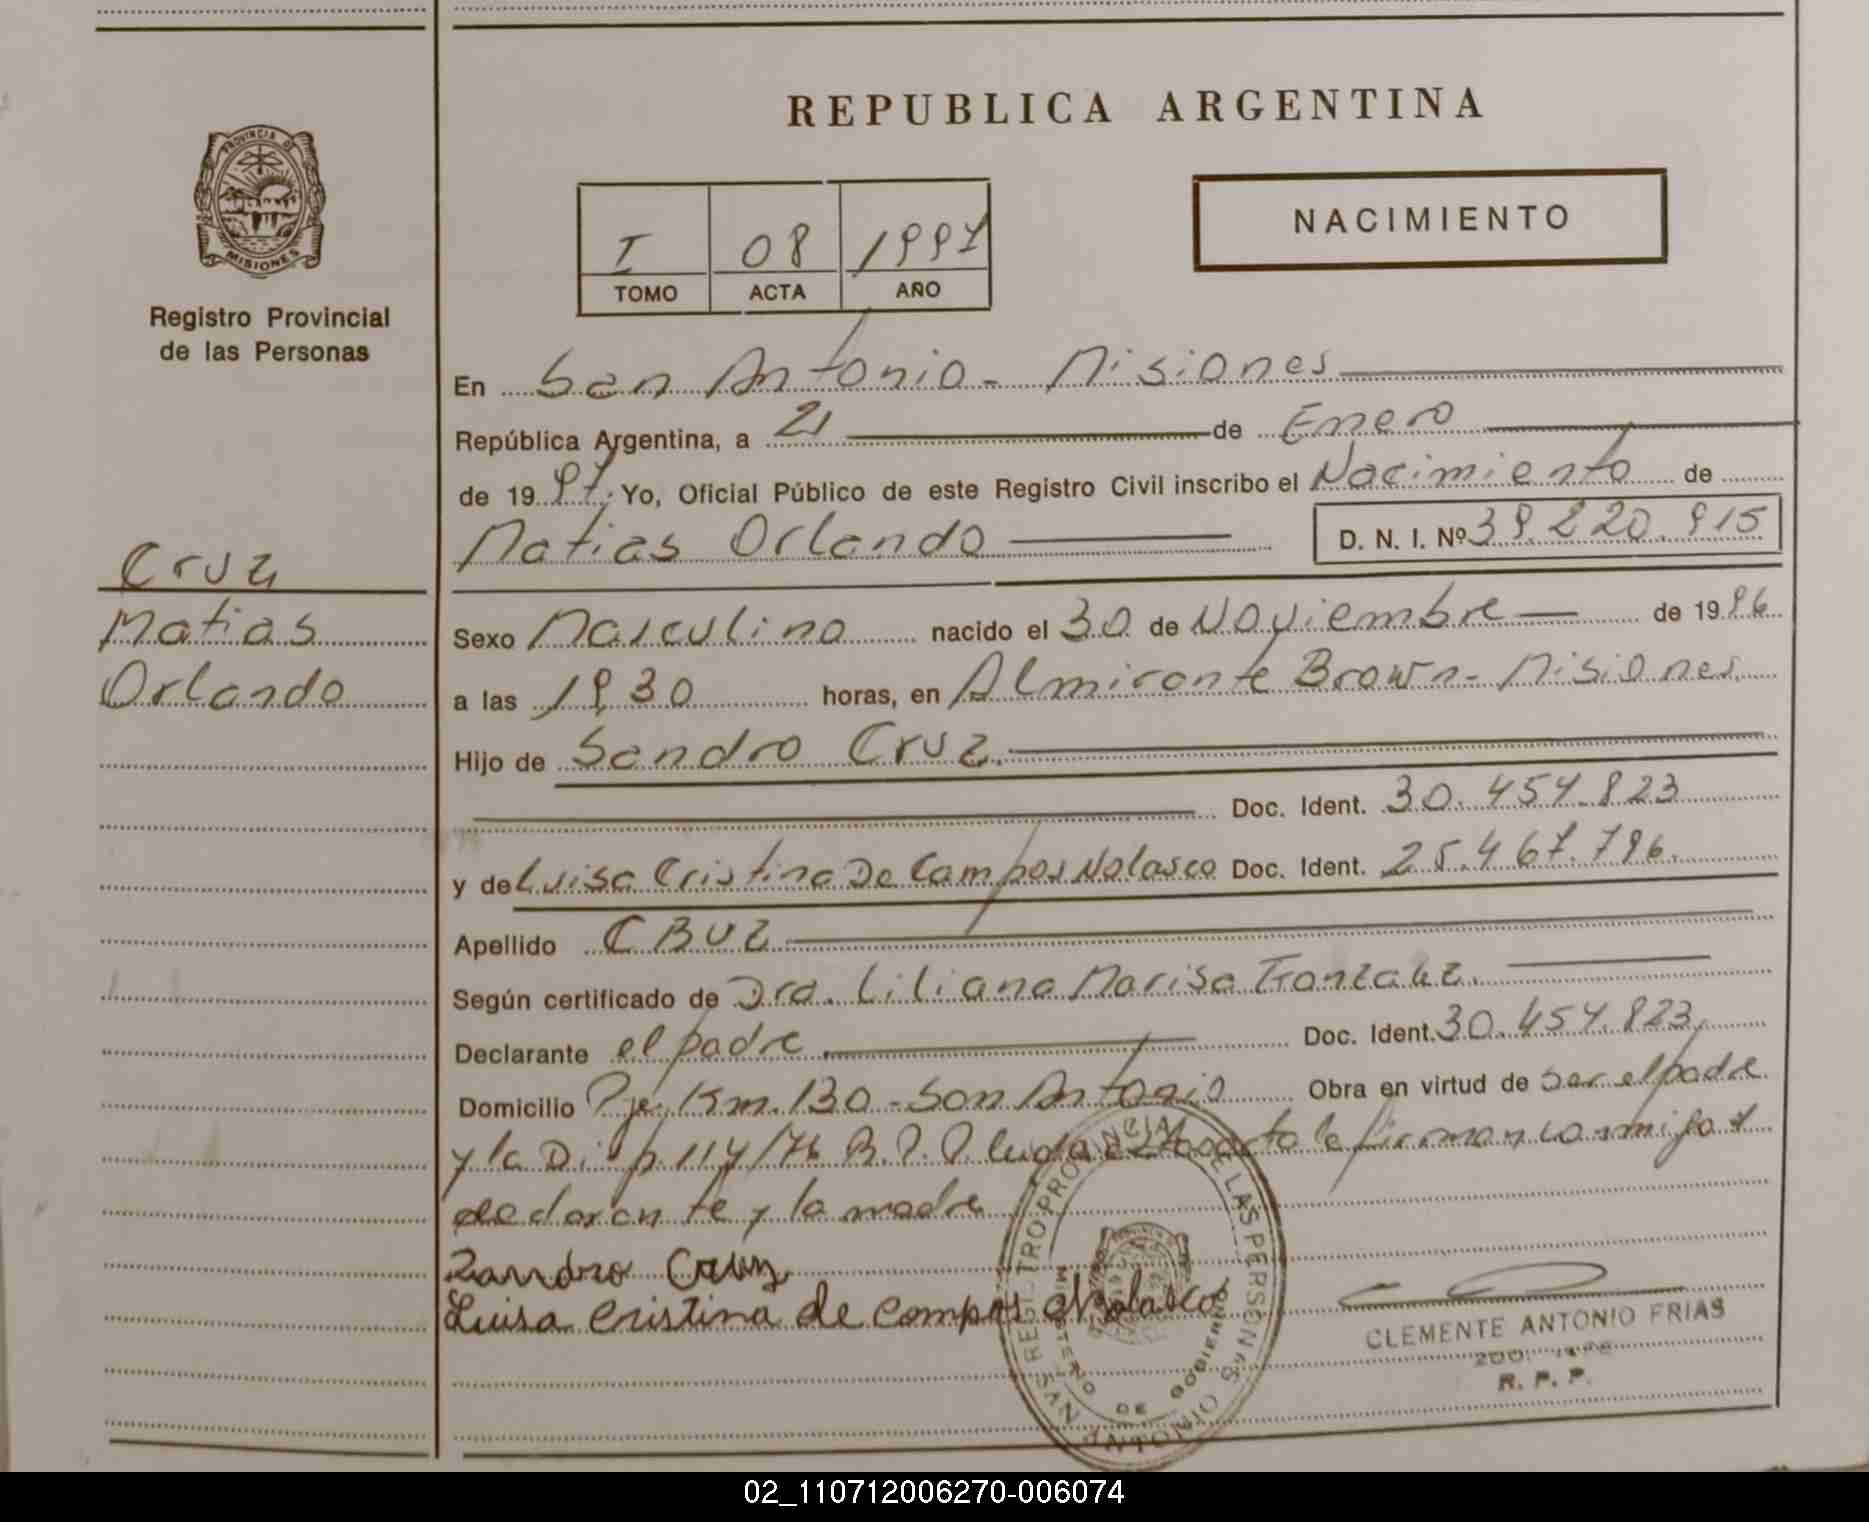 REPUBLICA ARGENTINA
NACIMIENTO
I 08 1997
TOMO ACTA AÑO
PROVINCIA DE MISIONES
Registro Provincial
de las Personas
En San Antonio - Misiones
República Argentina, a 21 de Enero
de 1997. Yo, Oficial Público de este Registro Civil inscribo el Nacimiento de
Matias Orlando D. N. I. Nº 39.220.915
Cruz
Matias
Orlando
Sexo Masculino nacido el 30 de Noviembre de 1996
a las 19,30 horas, en Almirante Brown - Misiones.
Hijo de Sandro Cruz.
Doc. Ident. 30.454.823
y de Luisa Cristina De Campos Nolasco Doc. Ident. 25.467.796.
Apellido CRUZ
Según certificado de Dra. Liliana Marisa
Declarante el padre Doc. Ident. 30.454.823,
Domicilio Pje. Km. 130 - San Antonio Obra en virtud de ser el padre
y la Disp. 114/76 R.P.P. firman conmigo el
declarante y la madre
Sandro Cruz
Luisa Cristina de Campos Nolasco
REGISTRO PROVINCIAL DE LAS PERSONAS
MINISTERIO DE GOBIERNO
SAN ANTONIO
CLEMENTE ANTONIO FRIAS
R. P. P.
02_110712006270-006074